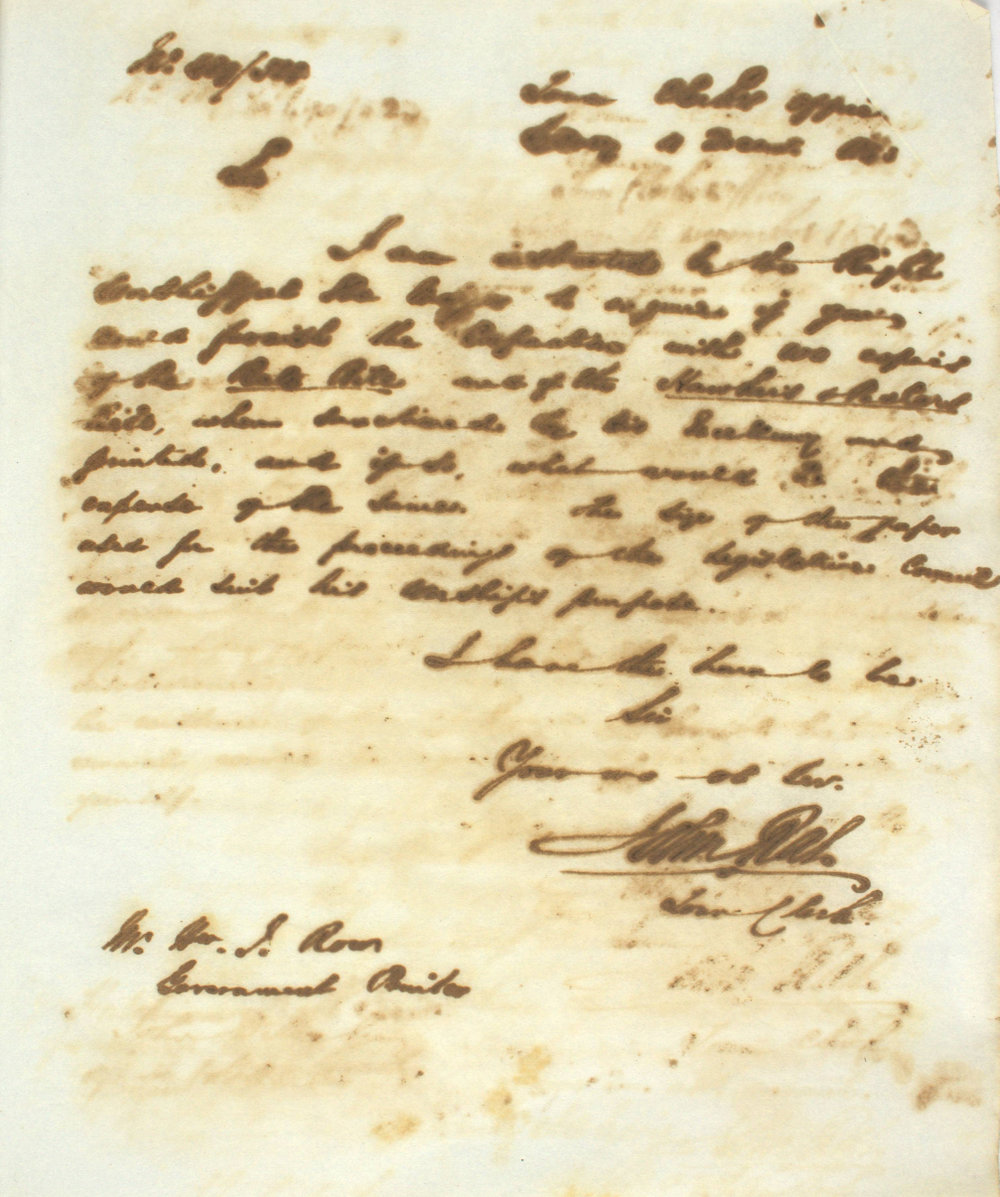 Town Clerk's Office
Sir
I am instructed by the Right
Worshipful the Mayor to enquire if you
could furnish the Corporation with two copies
of the and of the Hawkers & Dealers
Bills, when sanctioned by his Excellency and
printed, and if so, what would be the
expense of the same. The size of the paper
used for the proceedings of the Legislative Council
would suit his Worship's purpose.
I have the honor to be
Sir
Your mo ob ser.
John Rae
Town Clerk.
Mr. Wm. J. Row
Government Printer